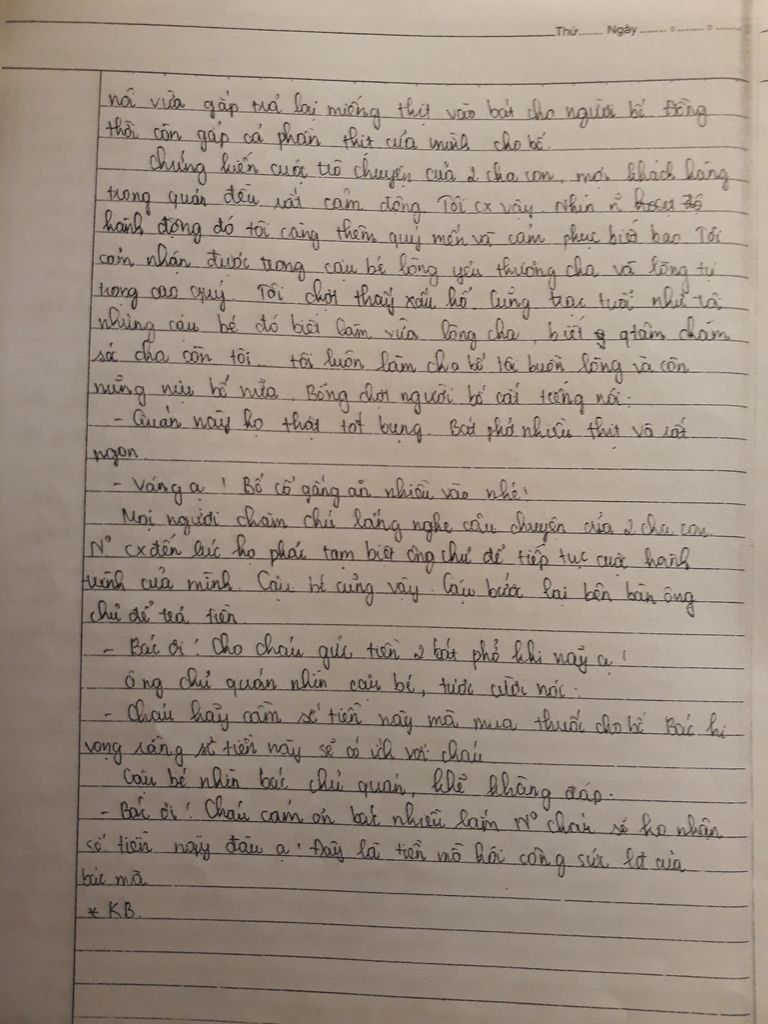 Thứ....... Ngày ........
nói vừa gắp trả lại miếng thịt vào bát cho người bố. Đồng
thời còn gắp cả phần thịt của mình cho bố.
Chứng kiến cuộc trò chuyện của 2 cha con, mọi khách hàng
trong quán đều rất cảm động. Tôi cx vậy. Nhìn n~
hành động đó tôi càng thêm quý mến và cảm phục biết bao. Tôi
cảm nhận được trong cậu bé lòng yêu thương cha và lòng tự
trọng cao quý. Tôi chợt thấy xấu hổ. Cùng trạc tuổi như
nhưng cậu bé đó biết làm vừa lòng cha, biết qtâm chăm
só cha còn tôi... tôi luôn làm cho bố tôi buồn lòng và còn
nũng nịu bố nữa. Bỗng chợt người bố cất tiếng nói:
- Quán này họ thật tốt bụng. Bát phở nhiều thịt và rất
ngon.
- Vâng ạ! Bố cố gắng ăn nhiều vào nhé!
Mọi người chăm chú lắng nghe câu chuyện của 2 cha con.
N° cx đến lúc họ phải tạm biệt ông chủ để tiếp tục cuộc hành
trình của mình. Cậu bé cũng vậy. Cậu bước lại bên bàn ông
chủ để trả tiền
- Bác ơi! Cho cháu gửi tiền 2 bát phở khi nãy ạ!
Ông chủ quán nhìn cậu bé, tươi cười nói:
- Cháu hãy cầm số tiền này mà mua thuốc cho bố. Bác hi
vọng rằng số tiền này sẽ có ích với cháu
Cậu bé nhìn bác chủ quán, khẽ khàng đáp.
- Bác ơi! Cháu cảm ơn bác nhiều lắm. N° cháu sẽ ko nhận
số tiền này đâu ạ! Đây là tiền mồ hôi công sức lđ của
bác mà
* KB.